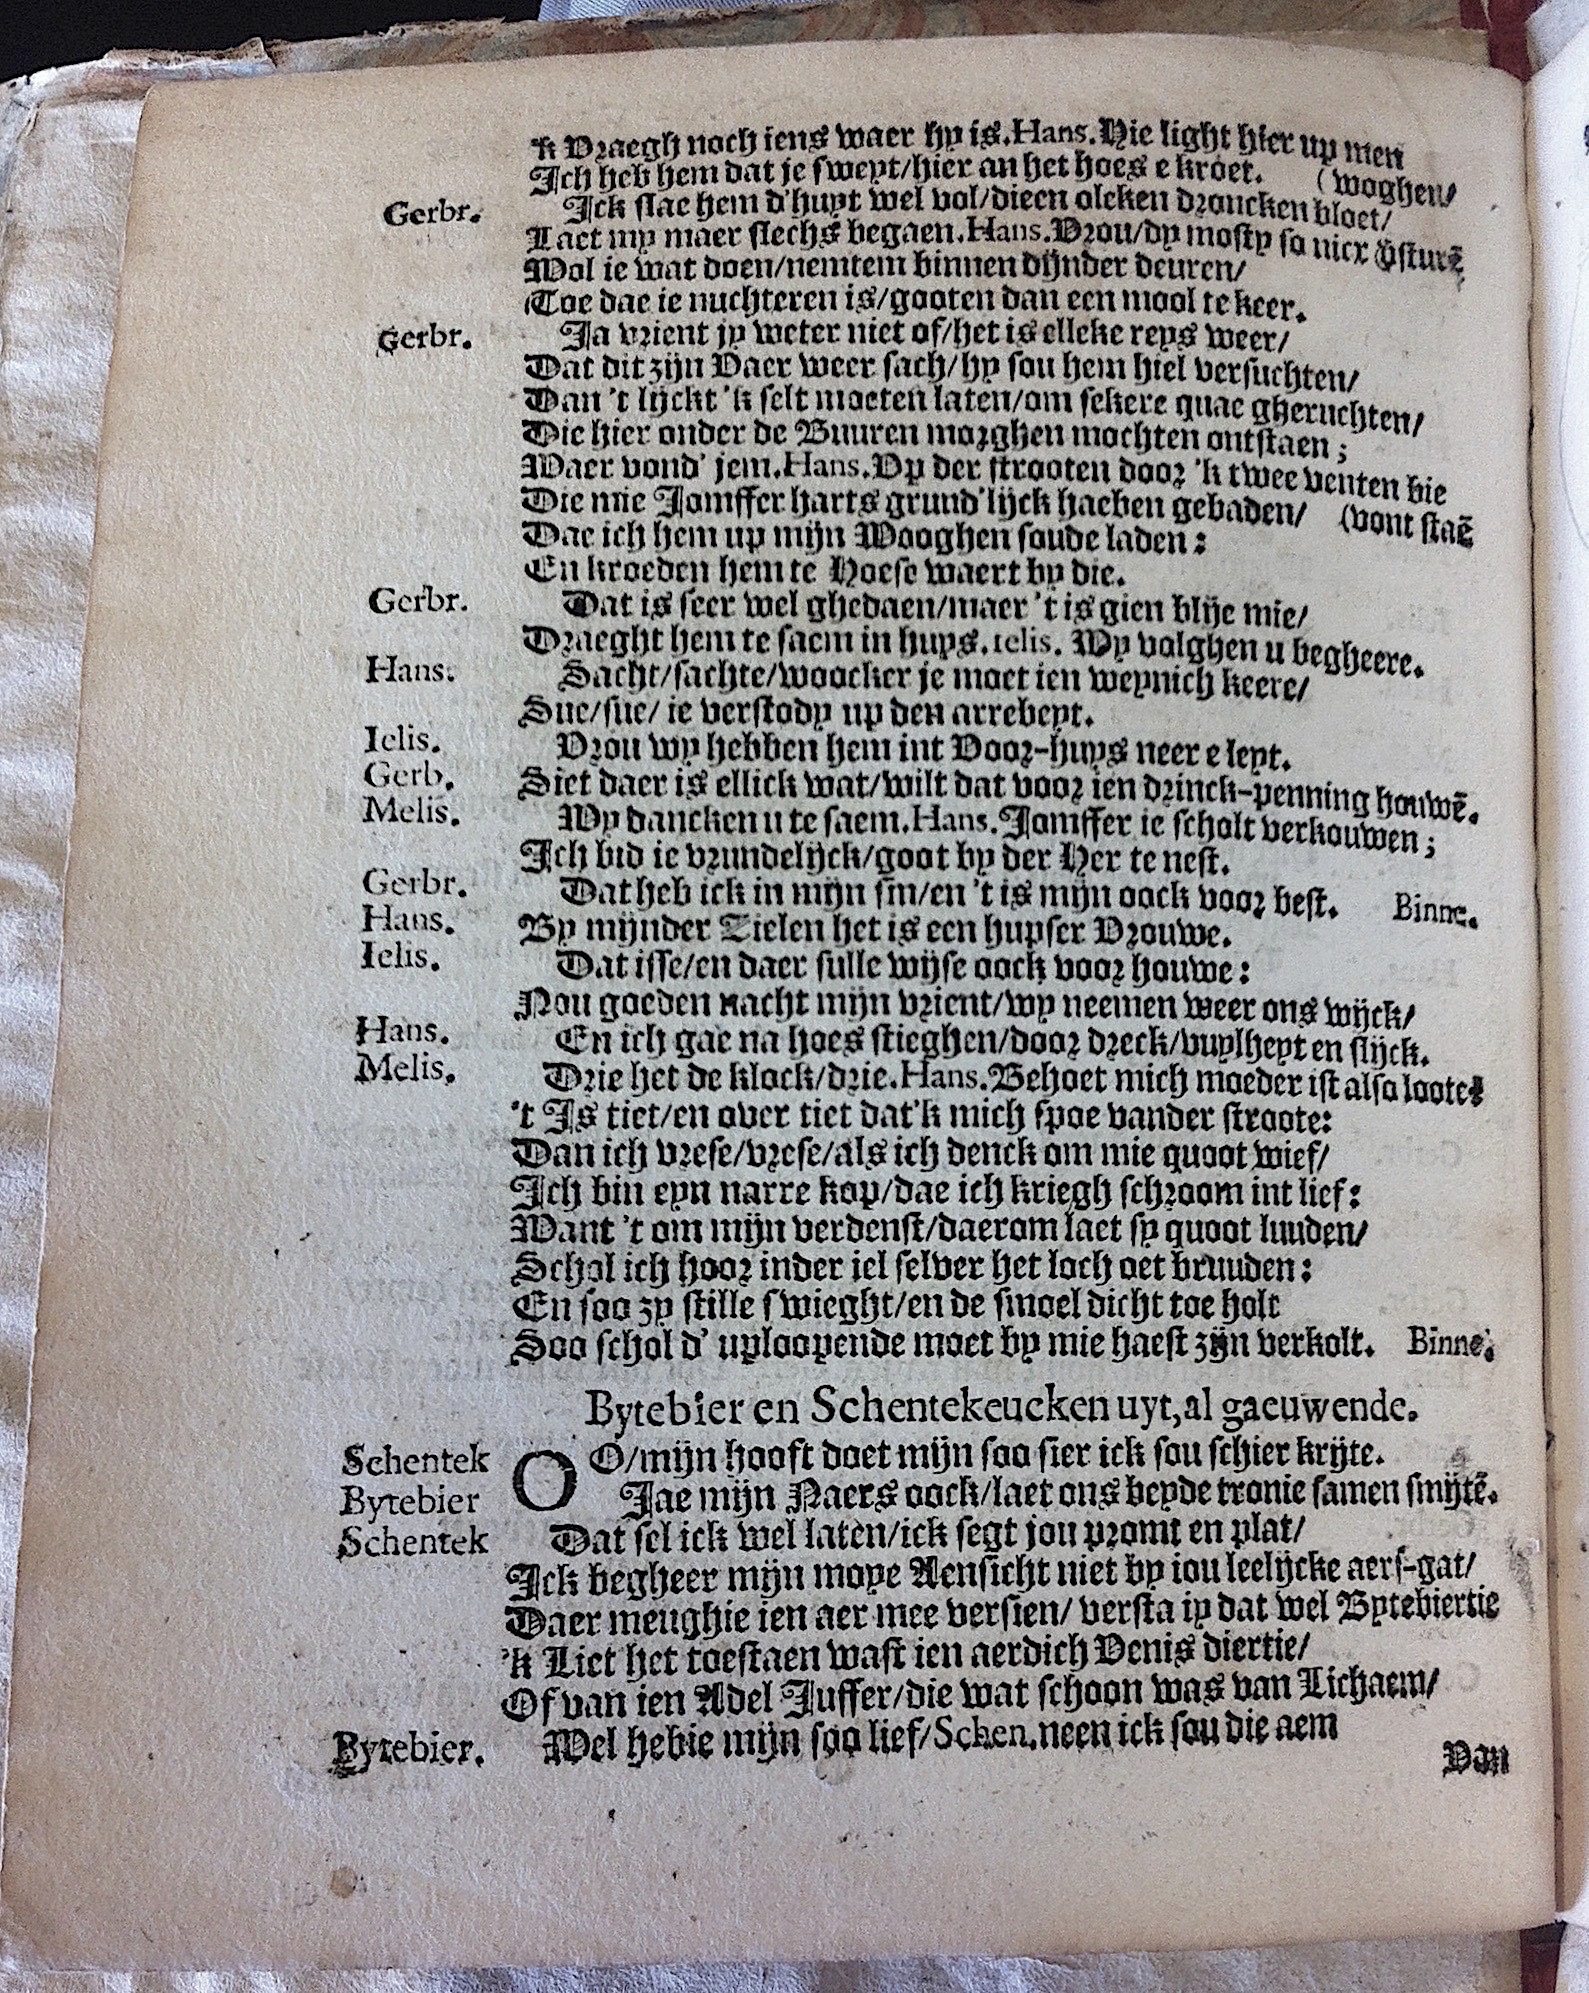 'k Vraegh noch iens waer hy is. Hans. Hie light hier up men
Ich heb hem dat je sweyt/hier an het hoes e kroet. (woghen/
Gerbr. Ick slae hem d'huyt wel vol/dieen olcken droncken bloet/
Laet my maer slechs begaen. Hans. Vrou/dy mosty so nicx
Wol ie wat doen/nemtem binnen dijnder deuren/
Toe dae ie nuchteren is/gooten dan een mool te keer.
Gerbr. Ja vrient jy weter niet of/het is elleke reys weer/
Dat dit zijn Vaer weer sach/hy sou hem hiel versuchten/
Dan 't lijckt 'k selt moeten laten/om sekere quae gheruchten/
Die hier onder de Buuren morghen mochten ontstaen;
Waer vond' jem. Hans. Op der strooten door 'k twee venten bie
Die mie Jomffer harts grund'lijck haeben gebaden/ (vont staẽ
Dae ich hem up mijn Wooghen soude laden:
En kroeden hem te Hoese waert by die.
Gerbr. Dat is seer wel ghedaen/maer 't is gien blije mie/
Draeght hem te saem in huys. Ielis. Wy volghen u begheere.
Hans. Sacht/sachte/woocker je moet ien weynich keere/
Sue/sue/ ie verstody up den arrebeyt.
Ielis. Vrou wy hebben hem int Voor-huys neer e leyt.
Gerb. Siet daer is ellick wat/wilt dat voor ien drinck-penning houwẽ.
Melis. Wy dancken u te saem. Hans. Jomffer ie scholt verkouwen;
Ich bid ie vrundelijck/goot by der Her te nest.
Gerbr. Dat heb ick in mijn sin/en 't is mijn oock voor best. Binne.
Hans. By mijnder Zielen het is een hupser Vrouwe.
Ielis. Dat isse/en daer sulle wijse oock voor houwe:
Nou goeden nacht mijn vrient/wy neemen weer ons wijck/
Hans. En ich gae na hoes stieghen/door dreck/vuylheyt en slijck.
Melis. Drie het de klock/drie. Hans. Behoet mich moeder ist also loote!
't Is tiet/en over tiet dat'k mich spoe vander stroote:
Dan ich vrese/vrese/als ich denck om mie quoot wief/
Ich bin eyn narre kop/dae ich kriegh schroom int lief:
Want 't om mijn verdenst/daerom laet sy quoot luuden/
Schol ich hoor inder iel selver het loch oet bruuden:
En soo zy stille swieght/en de smoel dicht toe holt
Soo schol d' uploopende moet by mie haest zijn verkolt. Binne.
Bytebier en Schentekeucken uyt, al gaeuwende.
Schentek OO/mijn hooft doet mijn soo sier ick sou schier krijte.
Bytebier Jae mijn Naers oock/laet ons beyde tronie samen smijtẽ.
Schentek Dat sel ick wel laten/ick segt jou promt en plat/
Ick begheer mijn moye Aensicht niet by iou leelijcke aers-gat/
Daer meughie ien aer mee versien/ versta iy dat wel Bytebiertie
'k Liet het toestaen wast ien aerdich Venis diertie/
Of van ien Adel Juffer/die wat schoon was van Lichaem/
Bytebier. Wel hebie mijn soo lief/Schen. neen ick sou die aem
Dan